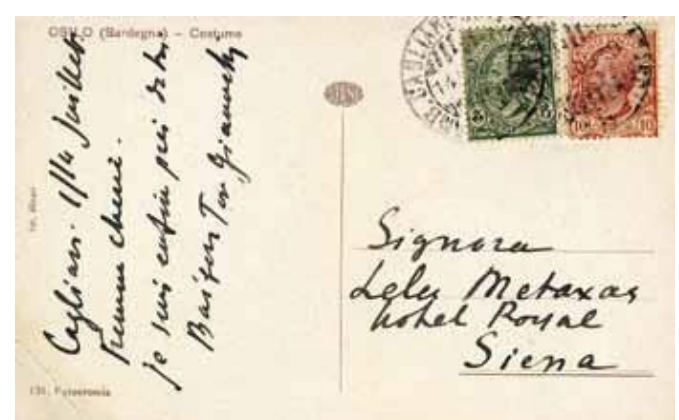 OSILO (Sardegna) – Costume
Cagliari. 1/14 Juillet.
Femme cherie.
je suis enfin près de toi
Baisers Ton Giannaki
Signora
Lely Metaxas
Hotel Royal
Siena
5
10
10
131. Fotocromia